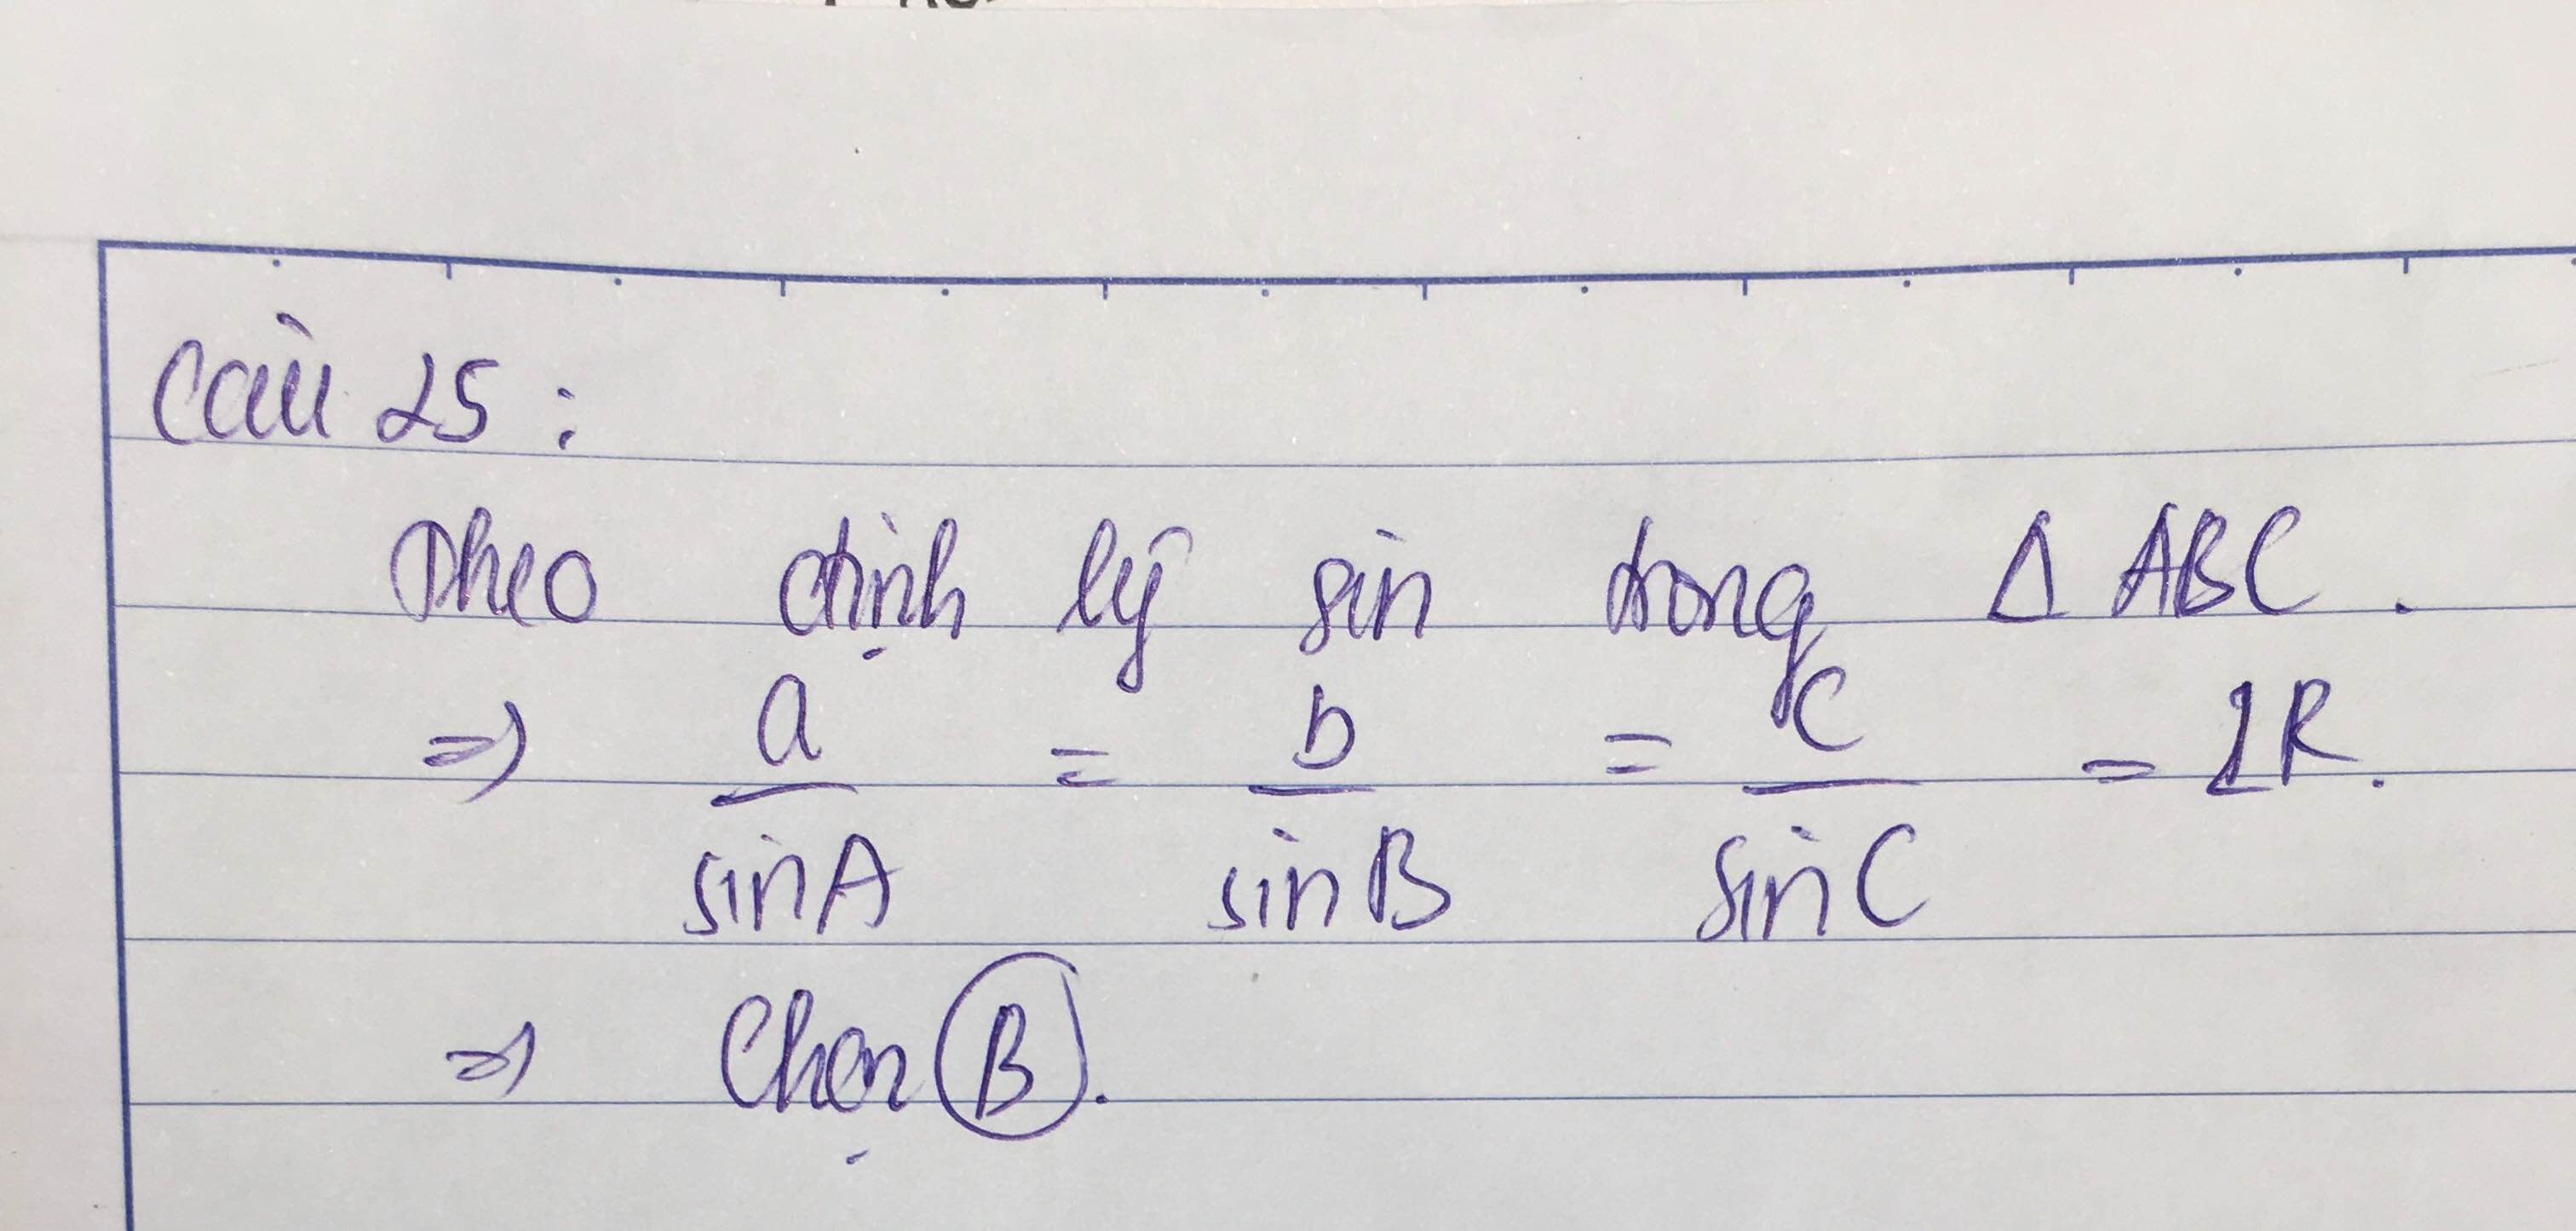 Câu 25:
Theo định lý sin trong Δ ABC.
=> a/sinA = b/sinB = c/sinC = 2R.
=> Chọn B.